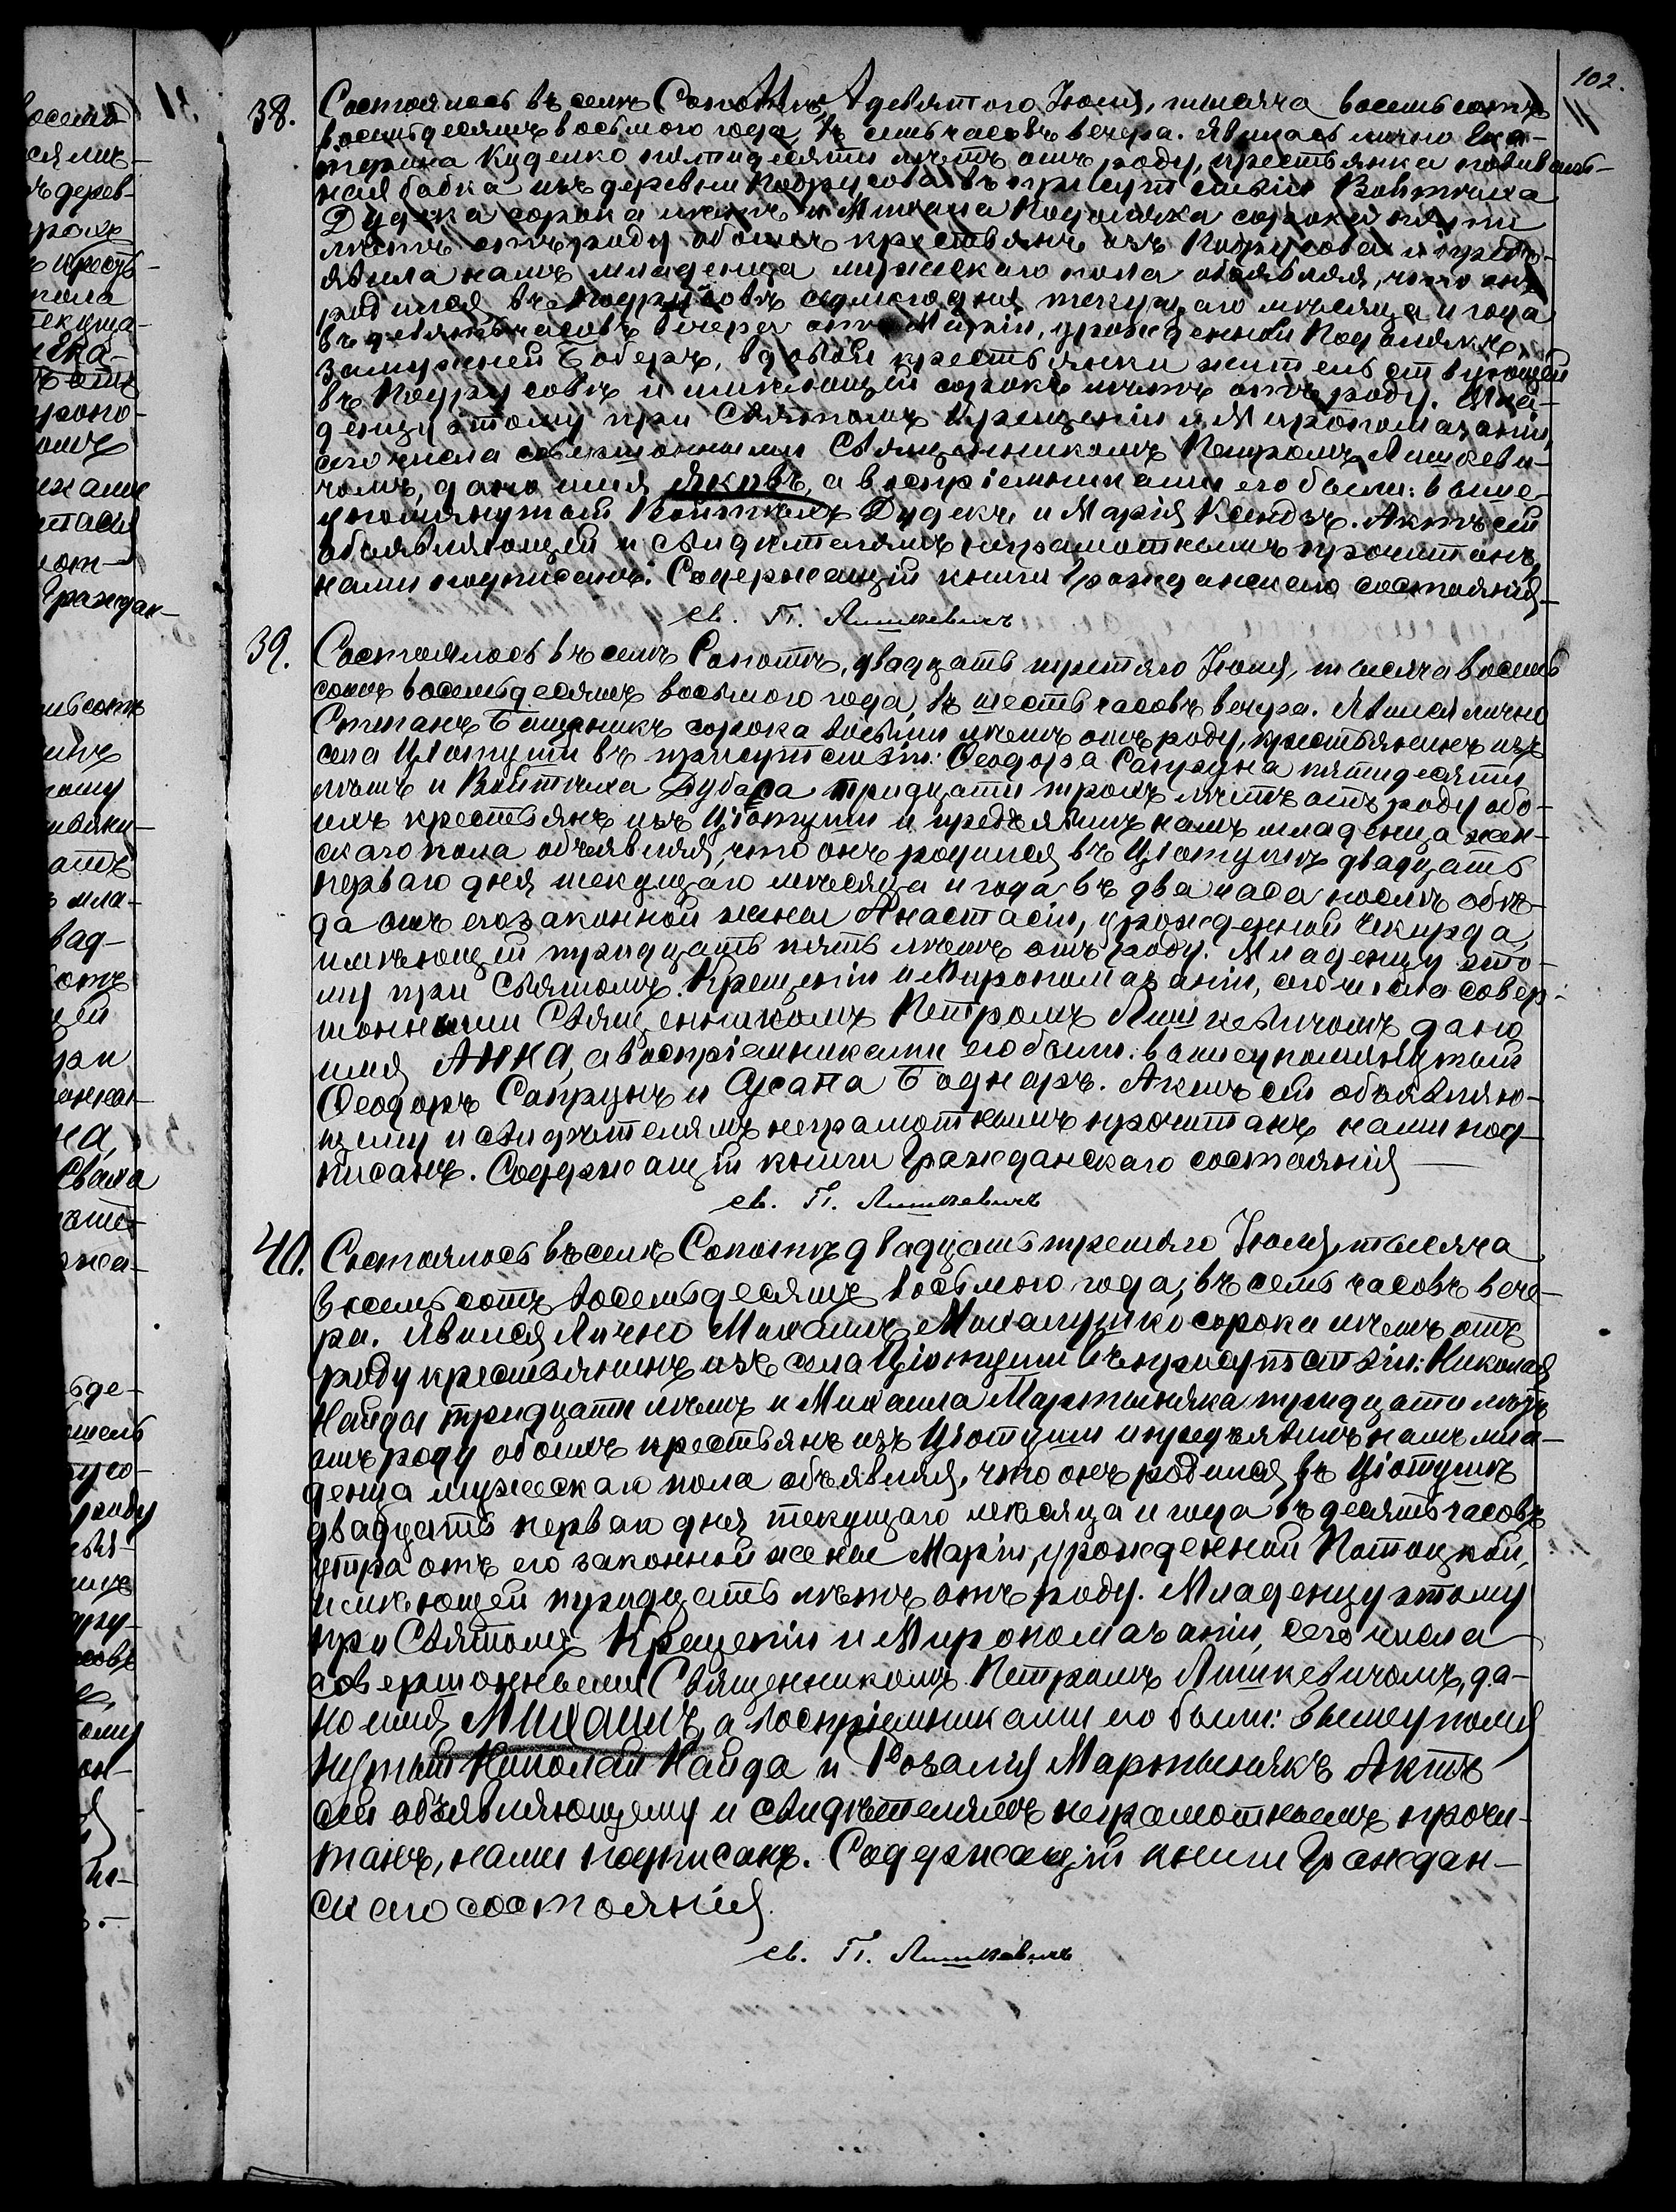 102.
38. Состоялось въ селѣ Сопотѣ, девятого Іюня, тысяча восемьсотъ
восемьдесятъ восьмого года, въ семь часовъ вечера. Явилась лично Ека-
терина Куделко пятидесяти лѣтъ отъ роду, крестьянка повиваль-
ная бабка изъ деревни Подрусова въ присутствіи Войтѣха
Дудека сорока лѣтъ и Михаила Подоляка сорока пяти
лѣтъ отъ роду обоихъ крестьянъ изъ Подрусова и предъ-
явила намъ младенца мужескаго пола объявляя, что онъ
родился въ Подрусовѣ седмого дня текущаго мѣсяца и года
въ девять часовъ вечера отъ Маріи, урожденной Подолякъ,
замужней Боберъ, вдовой крестьянки жительствующей
въ Подрусовѣ и имѣющей сорокъ лѣтъ отъ роду. Мла-
денцу этому при Святомъ Крещеніи и Миропомазаніи,
сего числа совершонными Священникомъ Петромъ Лишкеви-
чомъ, дано имя Яковъ, а воспріемниками его были: выше-
упомянутый Войтѣхъ Дудекъ и Марія Ксендзъ. Актъ сей
объявляющей и свидѣтелямъ неграмотнымъ прочитанъ,
нами подписанъ. Содержащій книги Гражданскаго состоянія
св. П. Лишкевичъ
39. Состоялось въ селѣ Сопотѣ, двадцать третяго Іюня, тысяча восемь
сотъ восемьдесятъ восьмого года, въ шесть часовъ вечера. Явился лично
Степанъ Бащникъ сорока восьми лѣтъ отъ роду, крестьянинъ изъ
села Цютуши въ присутствіи: Ѳеодора Сапруна пятидесяти
лѣтъ и Войтѣха Дубара тридцати трохъ лѣтъ отъ роду обо-
ихъ крестьянъ изъ Цютуши и предъявилъ намъ младенца жен-
скаго пола объявляя, что онъ родился въ Цютушѣ двадцать
перваго дня текущаго мѣсяца и года въ два часа послѣ обѣ-
да отъ его законной жены Анастасіи, урожденной Чекирда,
имѣющей тридцать пять лѣтъ отъ роду. Младенцу это-
му при Святомъ Крещеніи и Миропомазаніи, сего числа совер-
шонными Священникомъ Петромъ Лишкевичомъ дано
имя Анна, а воспріемниками его были: вышеупомянутый
Ѳеодоръ Сапрунъ и Сусана Боднаръ. Актъ сей объявляю-
щему и свидѣтелямъ неграмотнымъ прочитанъ нами под-
писанъ. Содержащій книги Гражданскаго состоянія
св. П. Лишкевичъ
40. Состоялось въ селѣ Сопотѣ двадцать третяго Іюня, тысяча
восемьсотъ восемьдесятъ восьмого года, въ семь часовъ вече-
ра. Явился лично Михаилъ Михалушко сорока лѣтъ отъ
роду крестьянинъ изъ села Цютуши въ присутствіи: Николая
Найды тридцати лѣтъ и Михаила Мартыняка тридцати лѣтъ
отъ роду обоихъ крестьянъ изъ Цютуши и предъявилъ намъ мла-
денца мужескаго пола объявляя, что онъ родился въ Цютушѣ
двадцать перваго дня текущаго мѣсяца и года въ десять часовъ
утра отъ его законной жены Маріи, урожденной Потоцкой,
имѣющей тридцать лѣтъ отъ роду. Младенцу этому
при Святомъ Крещеніи и Миропомазаніи, сего числа
совершонными Священникомъ Петромъ Лишкевичомъ, да-
но имя Михаилъ, а воспріемниками его были: вышеупомя
нутый Николай Найда и Розалія Мартынякъ Актъ
сей объявляющему и свидѣтелямъ неграмотнымъ прочи-
танъ, нами подписанъ. Содержащій книги Граждан-
скаго состоянія.
св. П. Лишкевичъ